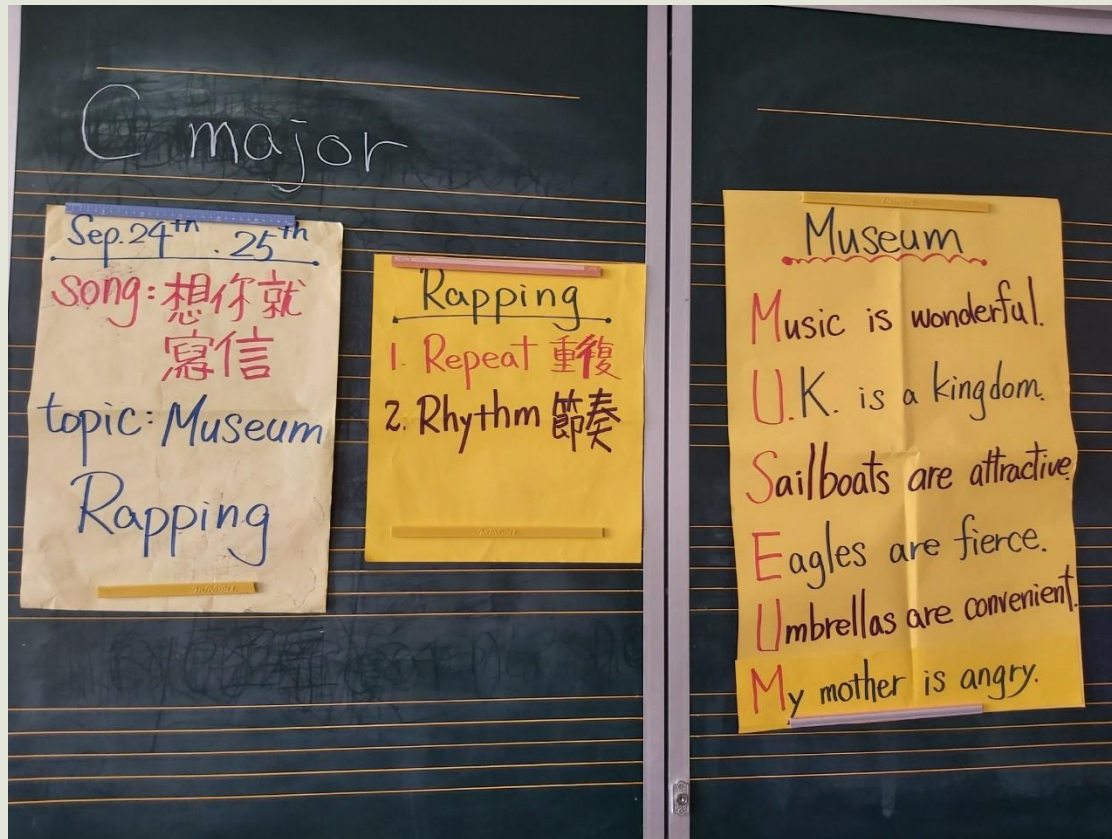 C major
Sep. 24th . 25th
song: 想你就
寫信
topic: Museum
Rapping
Rapping
1. Repeat 重複
2. Rhythm 節奏
Museum
Music is wonderful.
U.K. is a kingdom.
Sailboats are attractive.
Eagles are fierce.
Umbrellas are convenient.
My mother is angry.